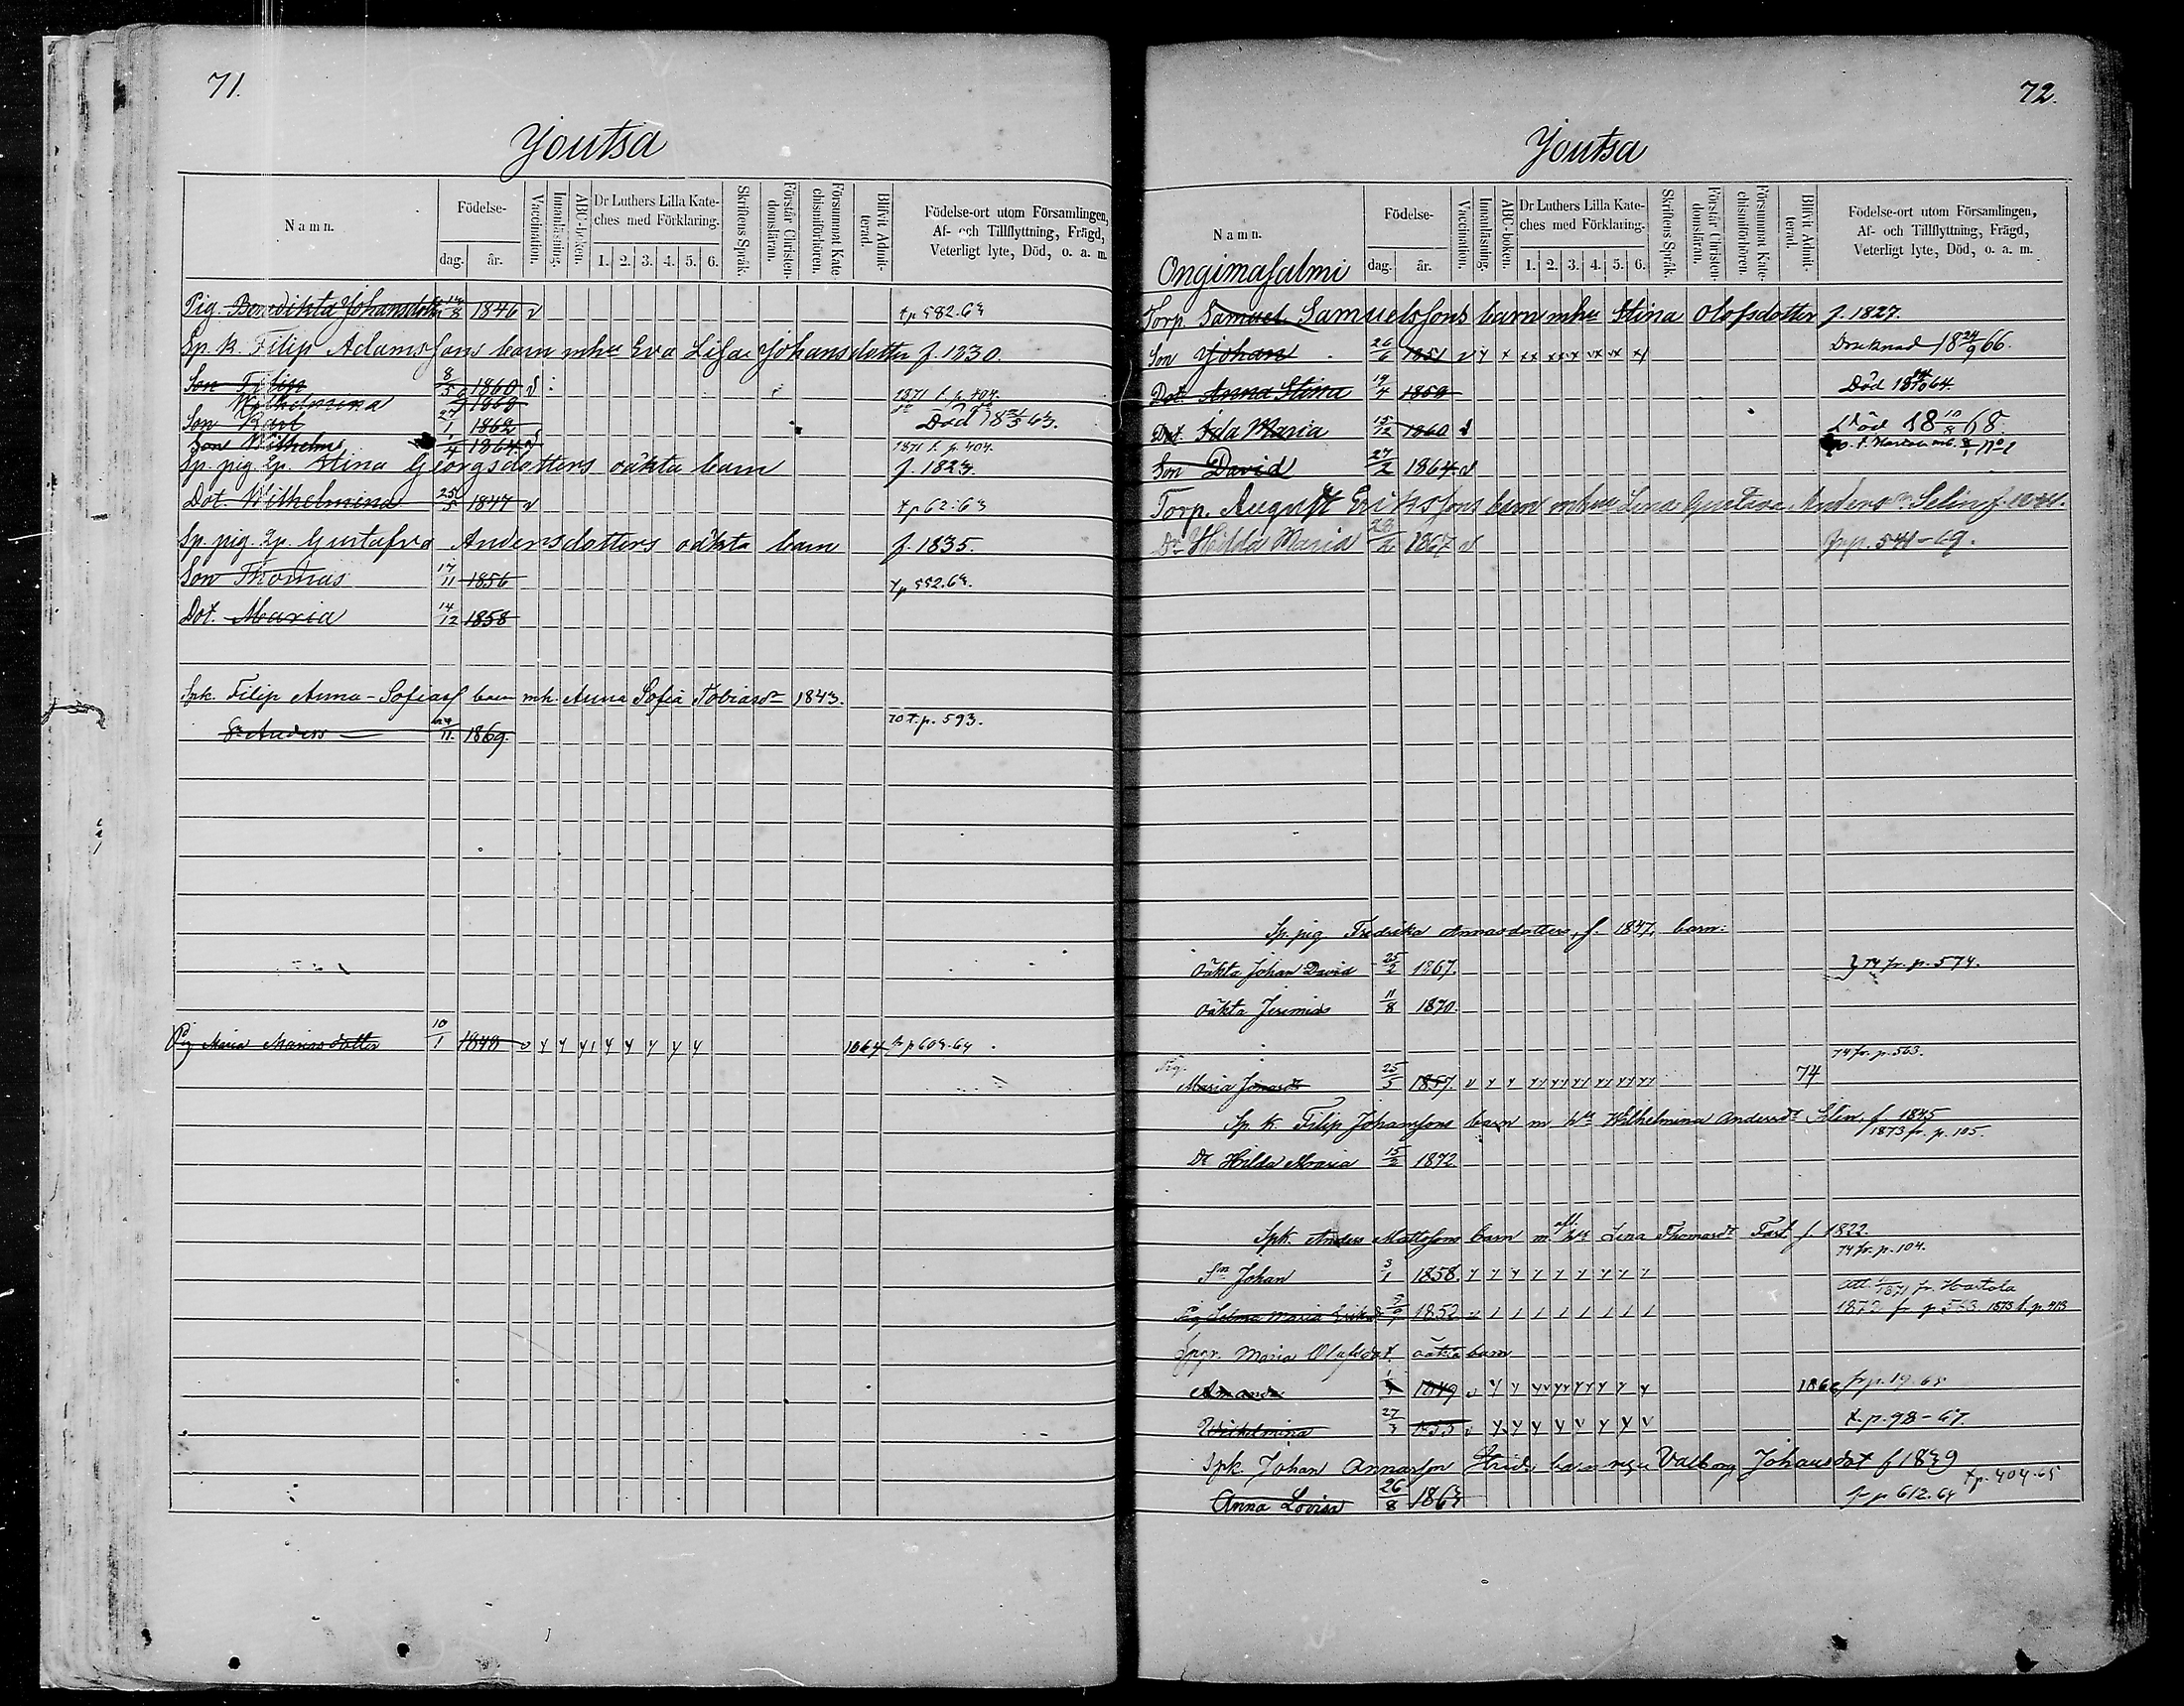 71.
Joutsa
Namn.
Födelse-
dag.
år.
Vaccination.
Innanläsning.
ABC-boken.
Dr Luthers Lilla Kate-
ches med Förklaring.
1. 2. 3. 4. 5. 6.
Skriftens Språk.
Förstår Christen-
domsläran.
Försummat Kate-
chismiförhören.
Blifvit Admit-
terad.
Födelse-ort utom Församlingen,
Af- och Tillflyttning, Frägd,
Veterligt lyte, Död, o. a. m.
Pig. Benedikta Johansdotter 8 1846 v t p 582.63
Sp. k. Filip Adamssons barn mhu Eva Lisa Johansdotter f. 1830.
Son Filip 8/5 1860 v 1871 t. p. 404.
Wilhelmina 1868
Son Karl 27/1 1862 Död 18 63.
Son Wilhelm 1/4 1864 v 1871 t. p. 404.
Sp. pig. Stina Georgsdotters oäkta barn f. 1823.
Dot. Wilhelmina 25/5 1847 v t p 62.63
Sp. pig. Gustafva Andersdotters oäkta barn f. 1835.
Son Thomas 17/11 1856 t p 552.63.
Dot. Maria 14/12 1858
Spk. Filip Anna-Sofiasf barn mh. Anna Sofia Tobiasdr 1843.
Sn Anders 29/11 1869. 70 t. p. 593.
Pig Maria Mariasdotter 10/1 1848 v y y y y y y y y 1864 fr p 603.64
72.
Joutsa
Namn.
Ongimasalmi
Födelse-
dag.
år.
Vaccination.
Innanläsning.
ABC-boken.
Dr Luthers Lilla Kate-
ches med Förklaring.
1. 2. 3. 4. 5. 6.
Skriftens Språk.
Förstår Christen-
domsläran.
Försummat Kate-
chismiförhören.
Blifvit Admit-
terad.
Födelse-ort utom Församlingen,
Af- och Tillflyttning, Frägd,
Veterligt lyte, Död, o. a. m.
Torp. Samuel Samuelssons barn mhu Stina Olofsdotter f. 1827.
Son Johan 26/6 1851 v y x xx xx x xx xx x Drucknad 18 24/9 66.
Dot. Anna Stina 19/4 1859 Död 18 64.
Dot. Ida Maria 15/12 1860 v Död 18 10/8 68.
Son David 27/2 1864 v
Torp. August Erikssons barn mhu Lena Gustava Andersdr Selin f. 1841.
Dr Hilda Maria 23/2 1867 v fr p. 541-69.
Sp. pig Fredrika Annasdotters, f. 1847, barn:
oäkta Johan David 25/2 1867. } 74 fr. p. 574.
oäkta Jeremias 11/8 1870.
Pig. 74 fr. p. 563.
Maria Jonasdr 25/5 1857. v y y yy yy yy yy yy yy 74
Sp. k. Filip Johanssons barn m hu Wilhelmina Andersdr Selin, f 1845
1873 fr. p. 105.
Dr Hilda Maria 15/2 1872
Spk. Anders Mattssons barn m afl. hu Lena Thomasdr Fast f. 1822.
74 fr. p. 104.
Sn Johan 3/1 1858. y y y y y y y y y
Att. 1871 fr. Hartola
Pig Selma Maria Eriksdr 1852 1873 t. p. 413
Spgn. Maria Olofsdot. oäkta barn
Amanda 1849 v y y fr p. 19. 65
Wilhelmina 27/3 1853 v y y y y v y y v t. p. 98-67.
Spk. Johan Annasson Strid, barn Valborg Johansdot f 1839
t p. 404.65
Anna Lovisa 26/8 1863 fr p 612.64